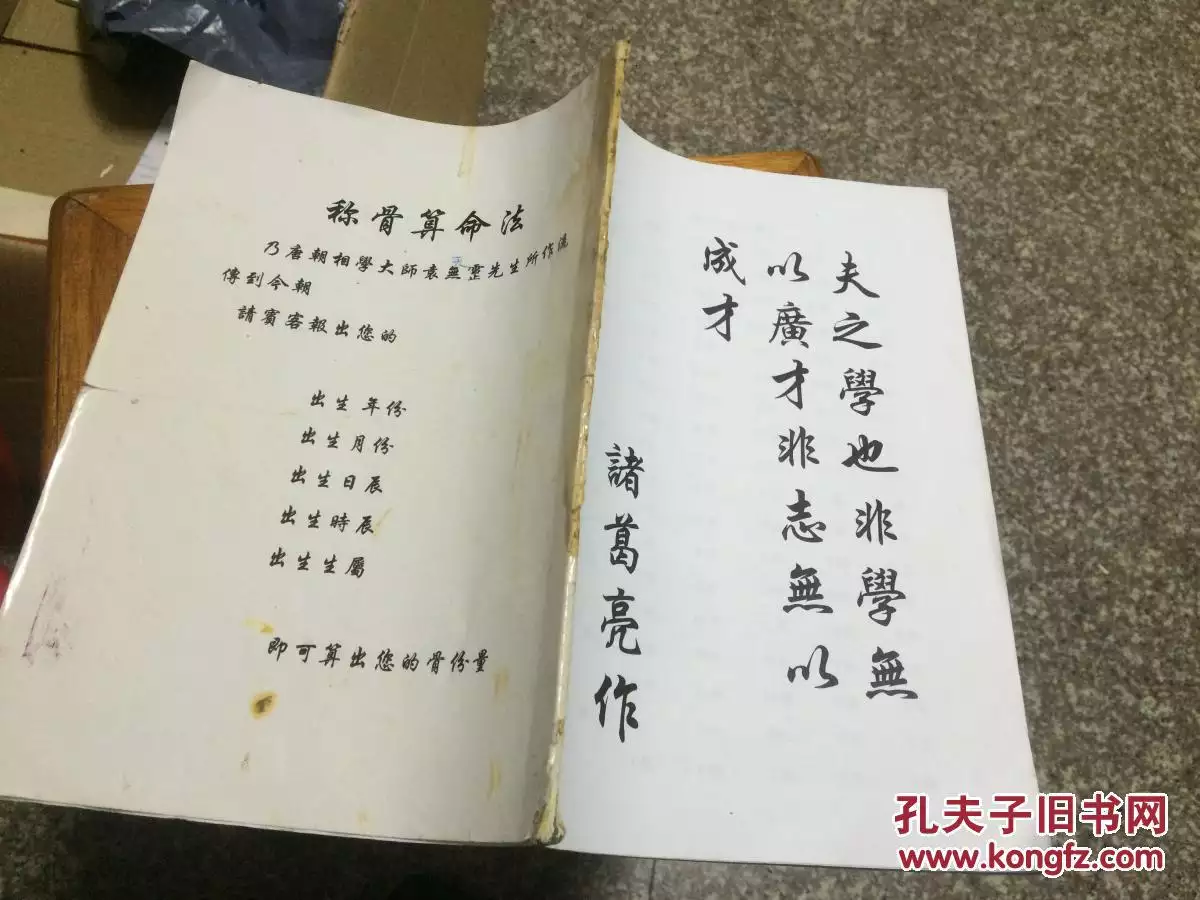 称骨算命法
乃唐朝相學大師袁無靈先生所作流
傳到今朝
請賓客報出您的
出生年份
出生月份
出生日辰
出生時辰
出生生屬
即可算出您的骨份量
夫之學也非學無
以廣才非志無以
成才
諸葛亮作
孔夫子旧书网
www.kongfz.com